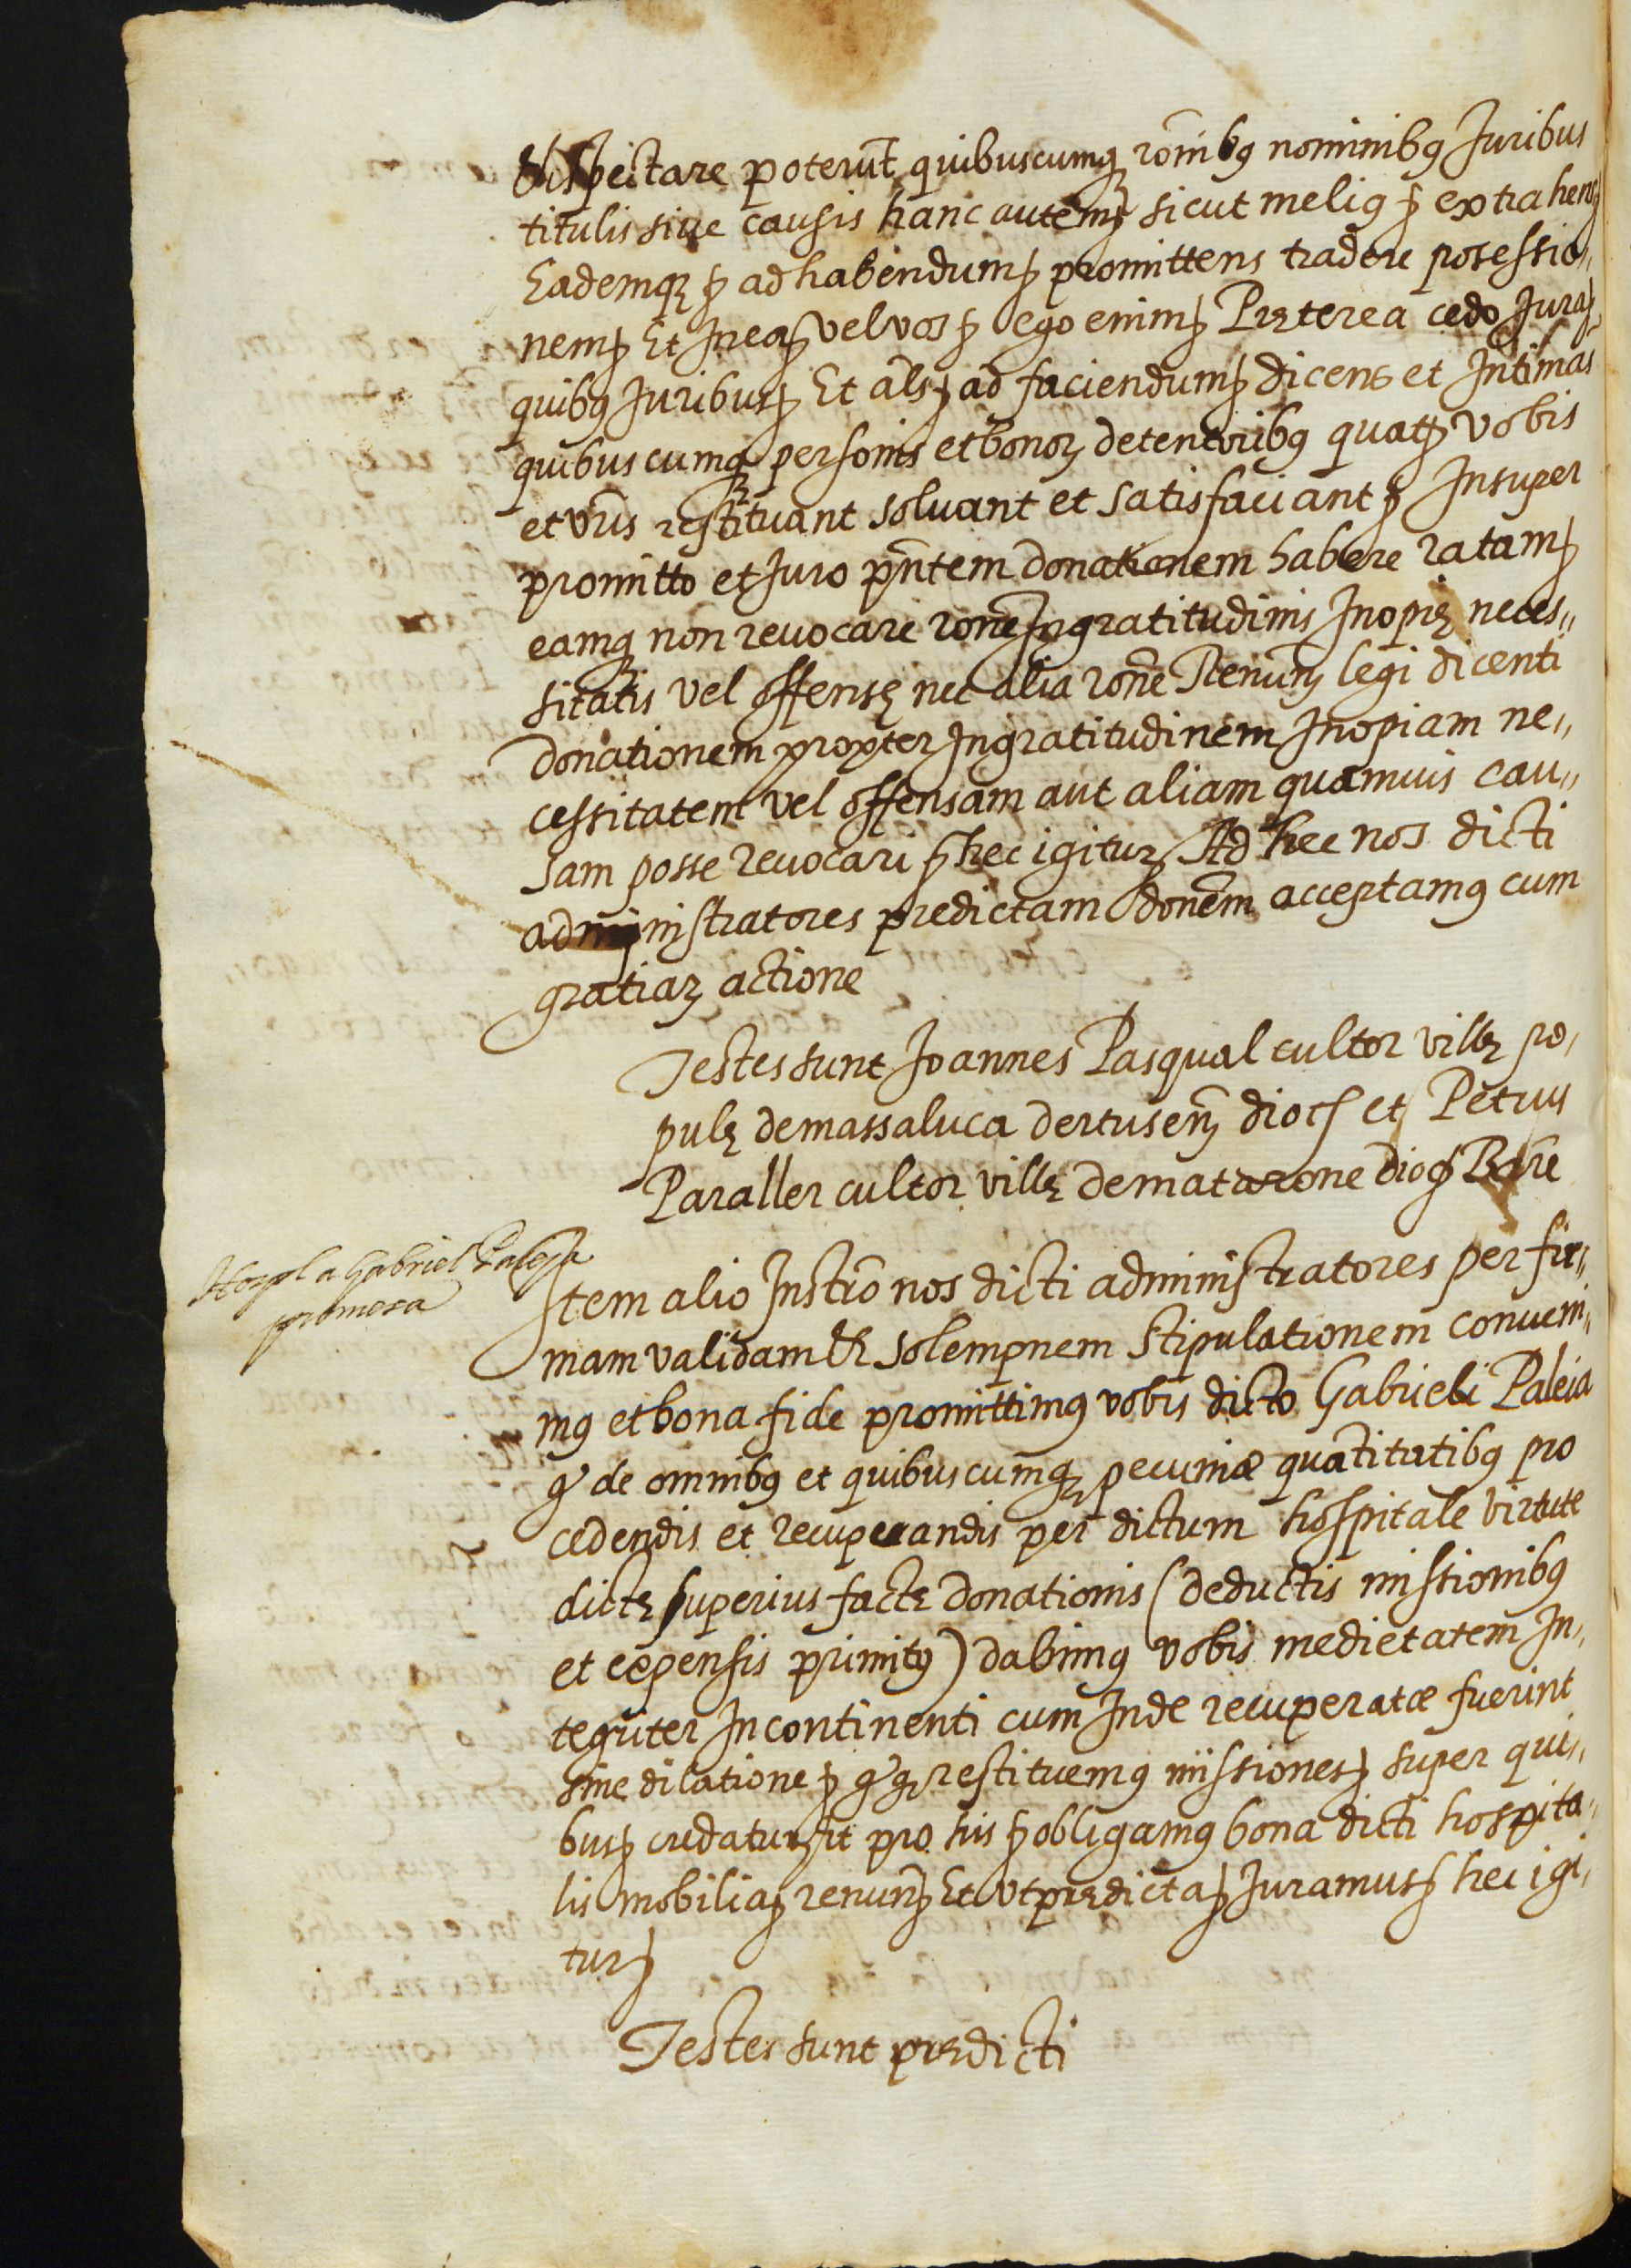 et spectare poterunt quibuscumqꝫ rõnibꝰ nominibꝰ Juribus
titulis siue causis hanc autemꝭ sicut meliꝰ ꝭ extrahensꝭ
Eademqꝫ ꝭ ad habendumꝭ promittens tradere posessio„
nemꝭ Et Ineaꝭ vel vos ꝭ ego enimꝭ Pręterea cedo Juraꝭ
quibꝰ Juribusꝭ Et alsꝭ ad faciendumꝭ dicens et Intimãs
quibuscumqꝫ personis et bonoꝝ detentoribꝰ quatꝭ vobis
et vr̃is restituant soluant et satisfaciant ꝭ Insuper
promitto et Juro pñtem donationem habere ratamꝭ
eamqꝫ non reuocare rõne Ingratitudinis Inopię neces„
sitatis vel offensę nec alia rõne Renunꝭ legi dicenti
donationem propter Ingratitudinem Inopiam ne„
cessitatem vel offensam aut aliam quamuis cau„
sam posse reuocari ꝭ hec igiturꝭ Ad hec nos dicti
administratores predictam donem̃ acceptamꝰ cum
gratiaꝝ actione
Testes sunt Joannes Pasqual cultor villę po„
pulę de massaluca dertusenꝭ diocꝭ et Petrus
Paraller cultor villę de matarone diocꝭ Barc̃e
Hospl a Gabriel Paleja
promesa
Item alio Instrõ nos dicti administratores per fir„
mam validam et solempnem stipulationem conueni„
mꝰ et bona fide promittimꝰ vobis dicto Gabrieli Paleia
ꝙ de omnibꝰ et quibuscumqꝫ pecuniæ quãtitatibꝰ pro
cedendis et recuperandis per dictum hospitale virtute
dictę superius factę donationis (deductis missionibꝰ
et expensis primitꝰ) dabimꝰ vobis medietatem In„
tegriter Incontinenti cum Inde recuperatæ fuerint
sine dilatione ꝭ ꝙqꝫ restituemꝰ missionesꝭ super qui„
busꝭ credaturꝭ et pro his ꝭ obligamꝰ bona dicti hospita„
lis mobiliaꝭ renunꝭ Et vt prędictaꝭ Juramusꝭ hec igi„
turꝭ
Testes sunt prędicti